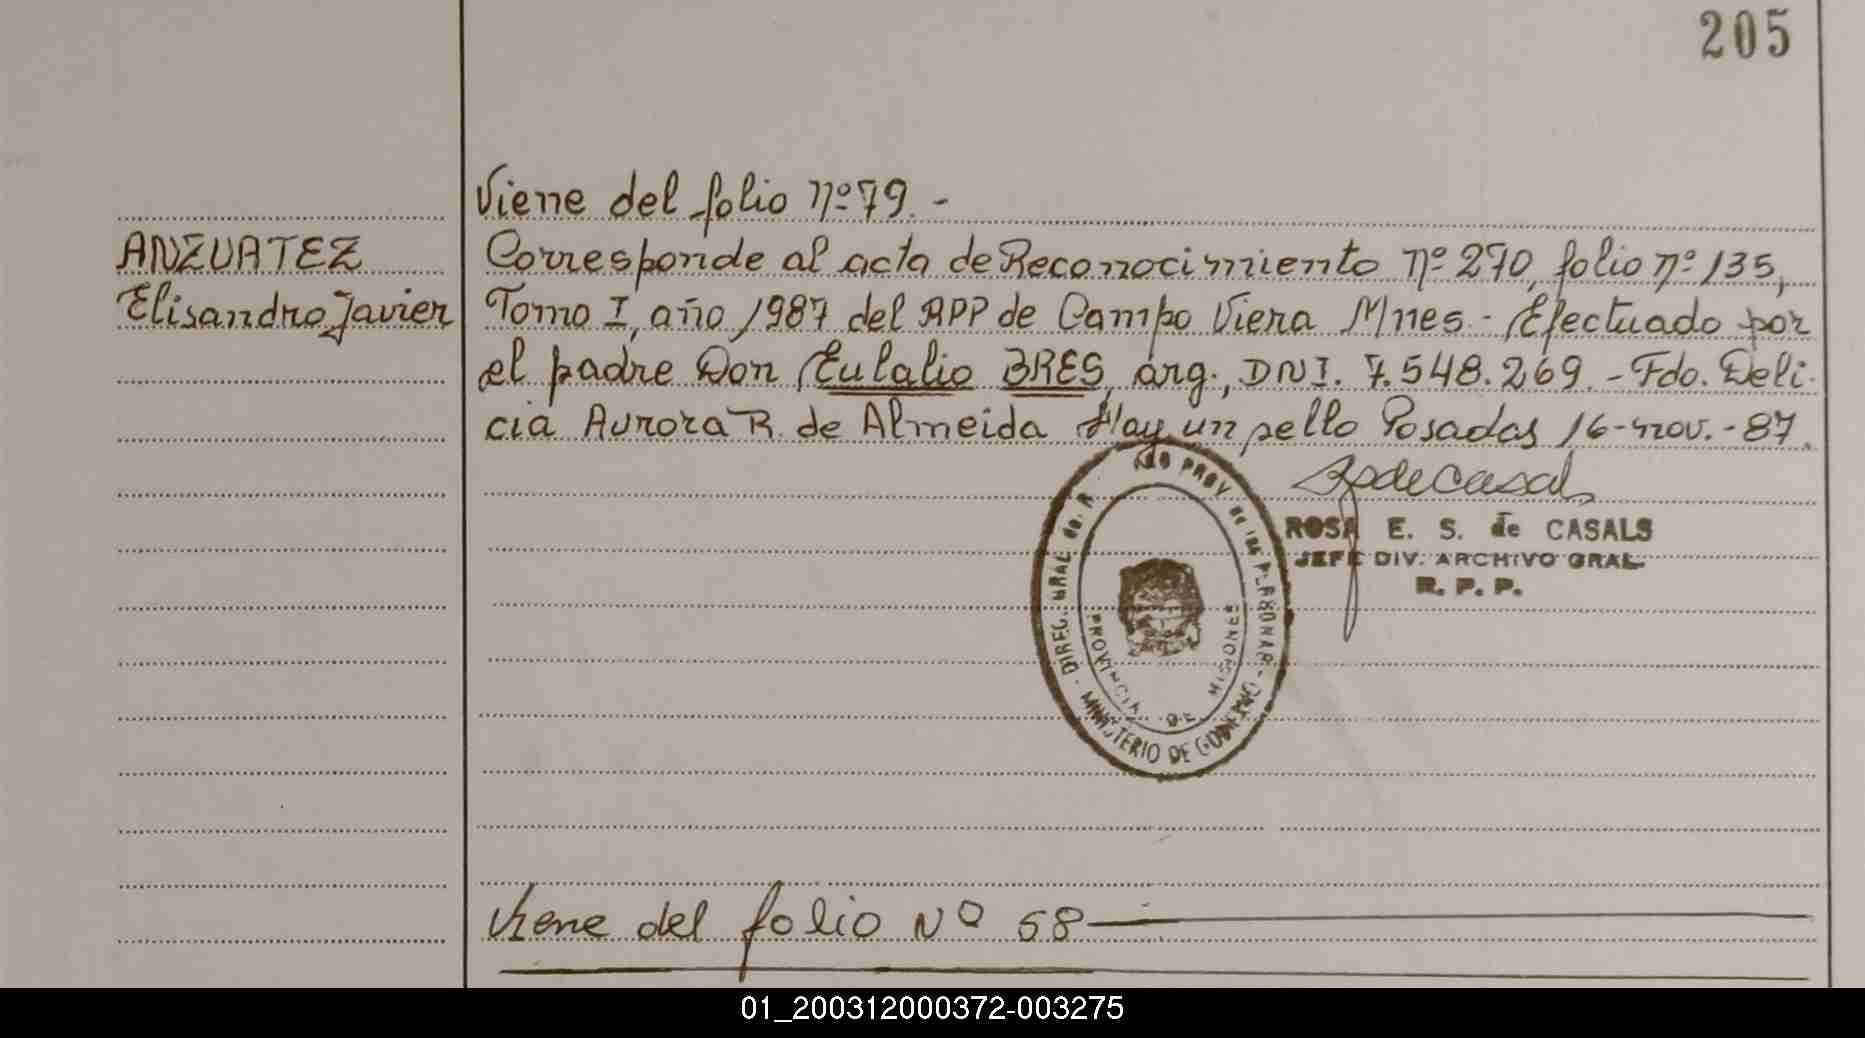 205
Viene del folio nº 79. -
ANZUATEZ
Elisandro Javier
Corresponde al acta de Reconocimiento nº 270, folio nº 135,
Tomo I, año 1987 del RPP de Campo Viera Mnes. - Efectuado por
el padre Don Eulalio BRES, arg., DNI. 7.548.269. - Fdo. Deli-
cia Aurora R. de Almeida Hay un sello Posadas 16-nov.-87.
ROSA E. S. de CASALS
JEFE DIV. ARCHIVO GRAL.
R. P. P.
DIREC. GRAL de. R PROV de las PERSONAS - MINISTERIO DE GOBIERNO -
PROVINCIA DE MISIONES
Viene del folio Nº 58
01_200312000372-003275